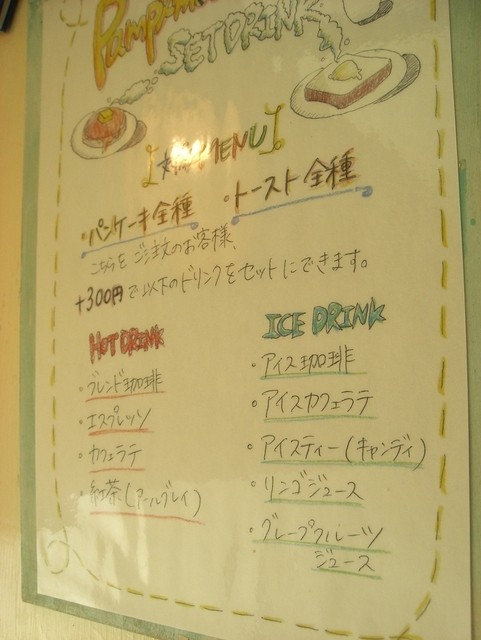 SET DRINK
MENU
・パンケーキ全種 ・トースト全種
こちらをご注文のお客様、
+300円で以下のドリンクをセットにできます。
HOT DRINK
・ブレンド珈琲
・エスプレッソ
・カフェラテ
・紅茶(アールグレイ)
ICE DRINK
・アイス珈琲
・アイスカフェラテ
・アイスティー(キャンディ)
・リンゴジュース
・グレープフルーツ
ジュース